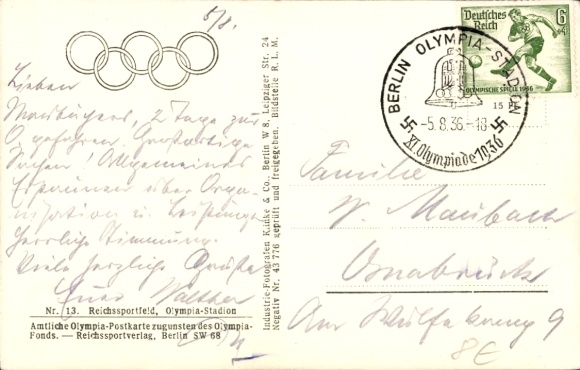 5/8.
Lieben
Maubachers, 2 Tage zur
O. gefahren. Großartige
Sachen! Allgemeines
Erstaunen über Orga-
nisation u. Leistungen
Herrliche Stimmung.
Viele herzliche Grüße
Euer Walther
Nr. 13. Reichssportfeld, Olympia-Stadion
Amtliche Olympia-Postkarte zugunsten des Olympia-
Fonds. — Reichssportverlag, Berlin SW 68
Industrie-Fotografen Klinke & Co., Berlin W 8, Leipziger Str. 24
Negativ Nr. 43 776 geprüft und freigegeben. Bildstelle R. L. M.
Deutsches
Reich
6
OLYMPISCHE SPIELE 1936
BERLIN OLYMPIA-STADION
15 Pf.
-5.8.36.-18
XI. Olympiade 1936
Familie
W. Maubach
Osnabrück
Am
9
8€